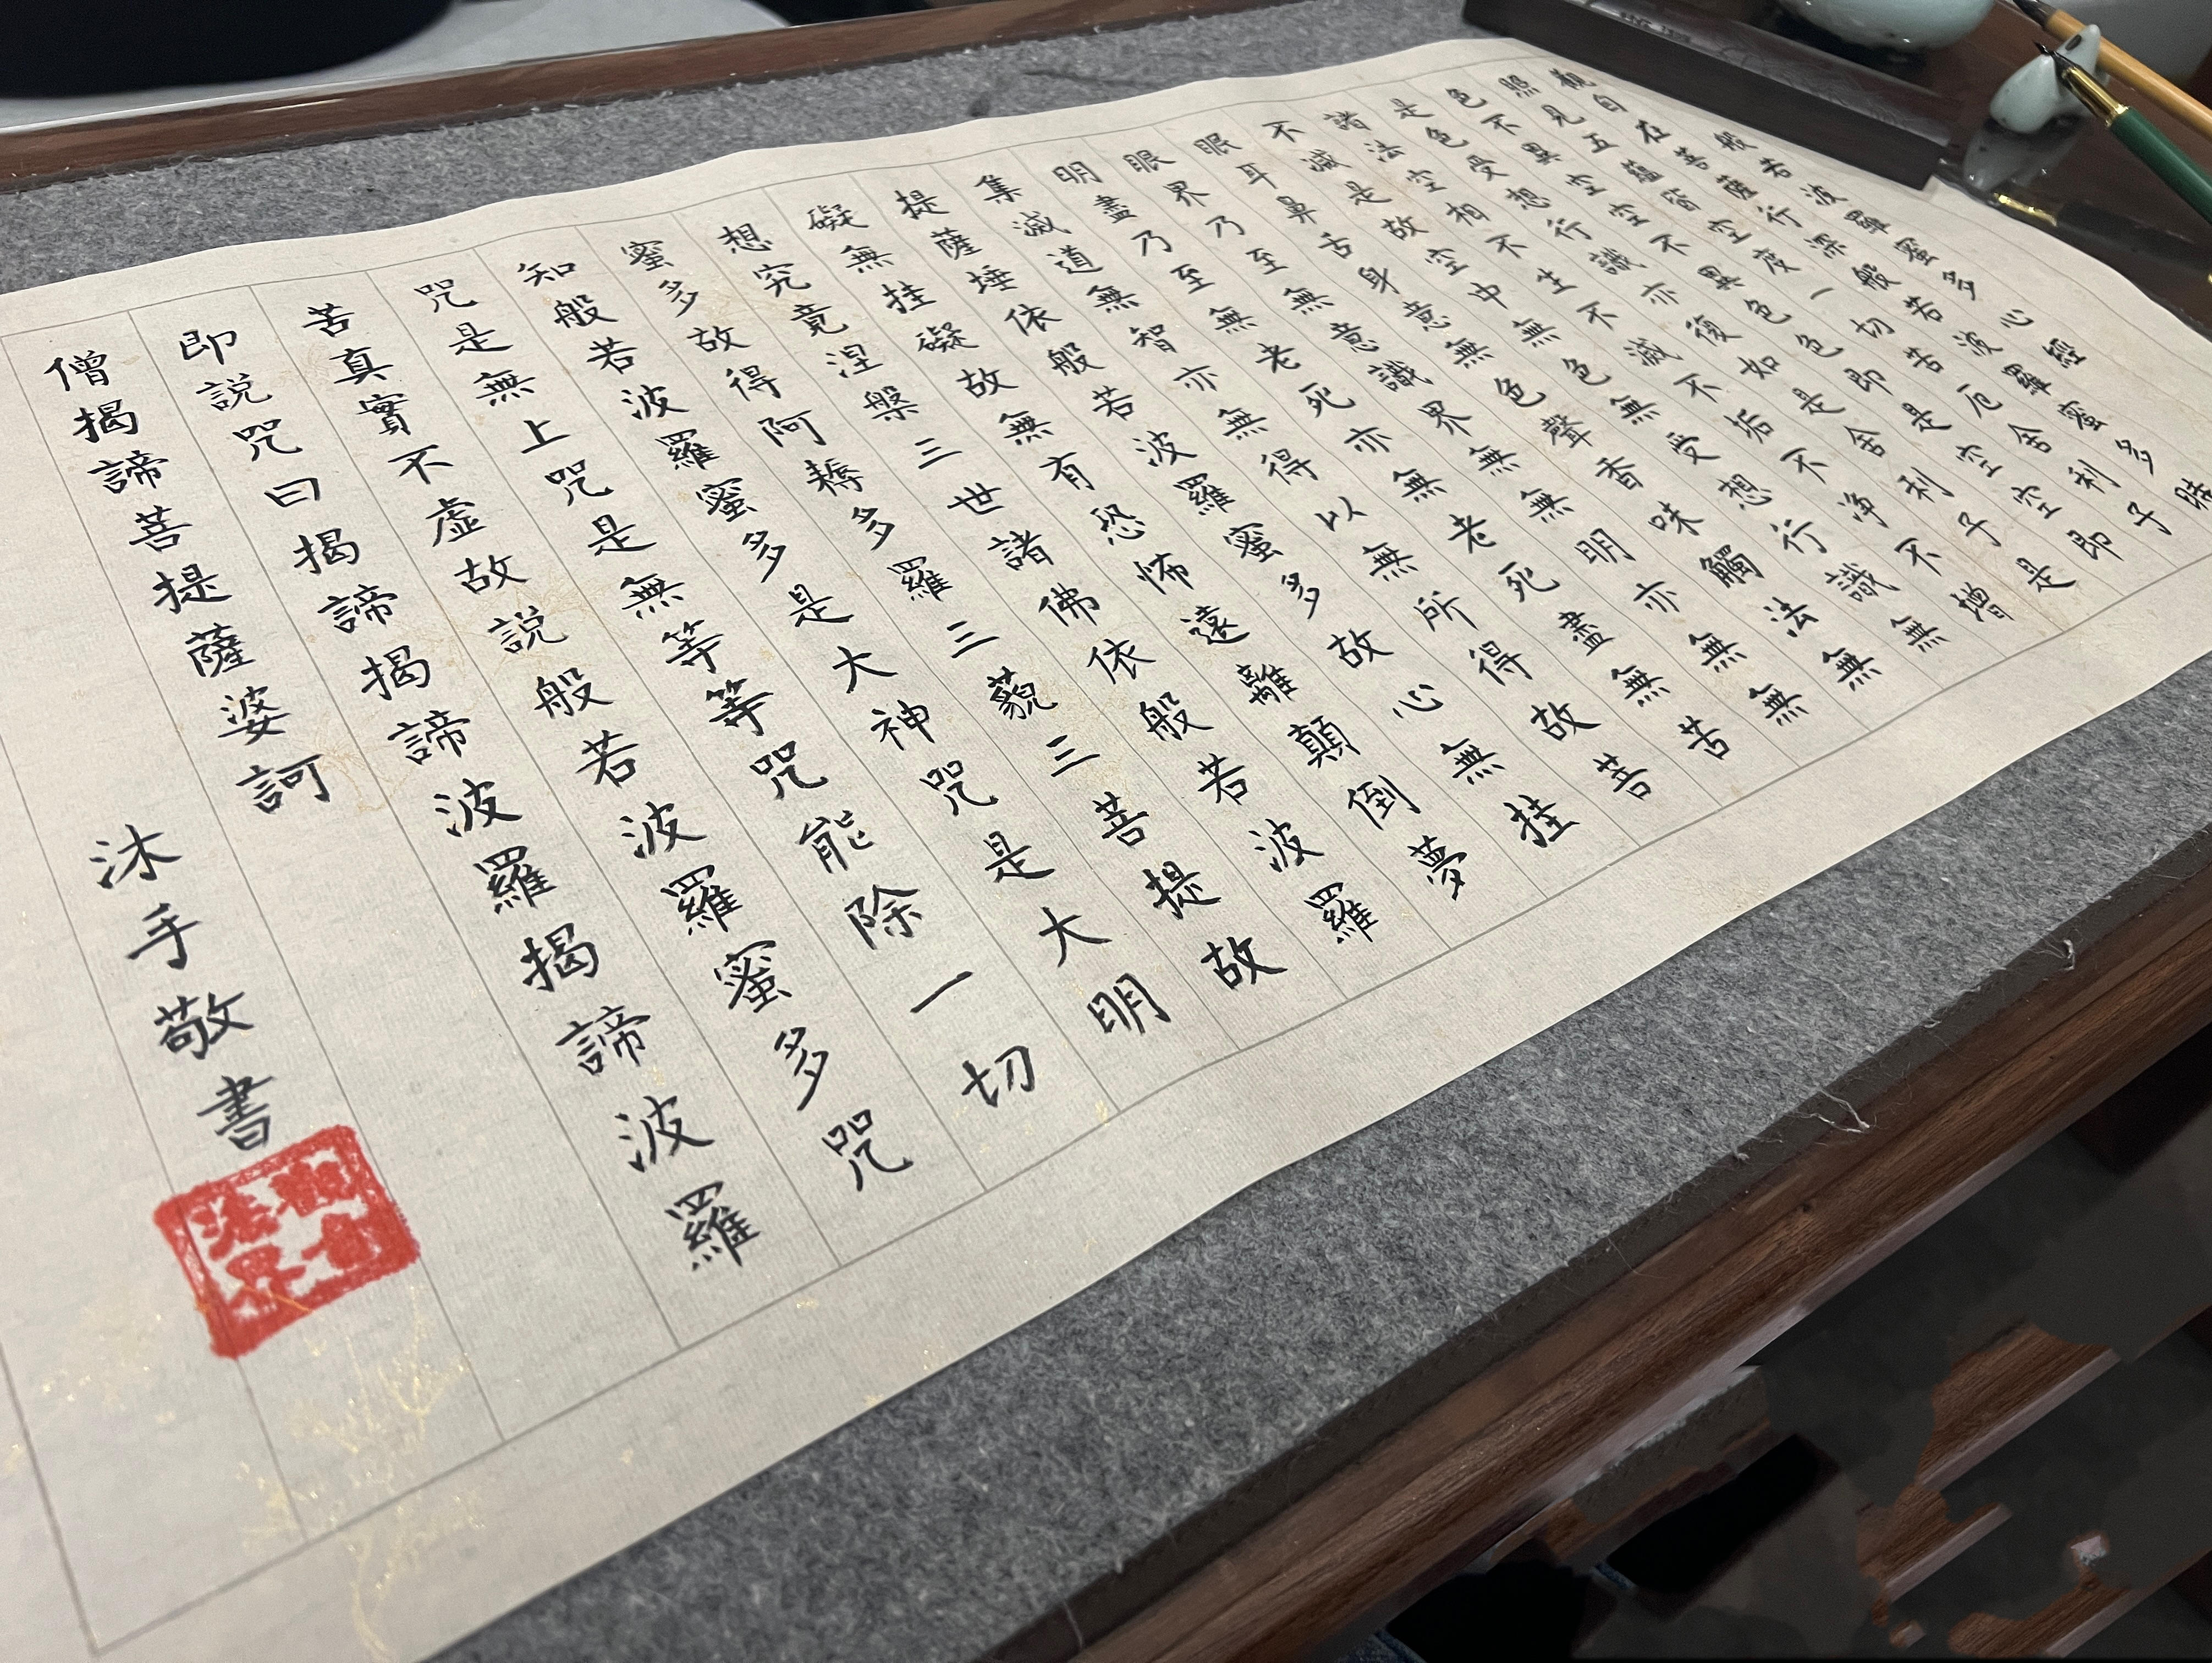 般若波羅蜜多心經
觀自在菩薩行深般若波羅蜜多時
照見五蘊皆空度一切苦厄舍利子
色不異空空不異色色即是空空即
是色受想行識亦復如是舍利子是
諸法空相不生不滅不垢不净不增
不減是故空中無色無受想行識無
眼耳鼻舌身意無色聲香味觸法無
眼界乃至無意識界無無明亦無無
明盡乃至無老死亦無老死盡無苦
集滅道無智亦無得以無所得故菩
提薩埵依般若波羅蜜多故心無挂
礙無挂礙故無有恐怖遠離顛倒夢
想究竟涅槃三世諸佛依般若波羅
蜜多故得阿耨多羅三藐三菩提故
知般若波羅蜜多是大神咒是大明
咒是無上咒是無等等咒能除一切
苦真實不虛故説般若波羅蜜多咒
即説咒曰揭諦揭諦波羅揭諦波羅
僧揭諦菩提薩婆訶
沐手敬書